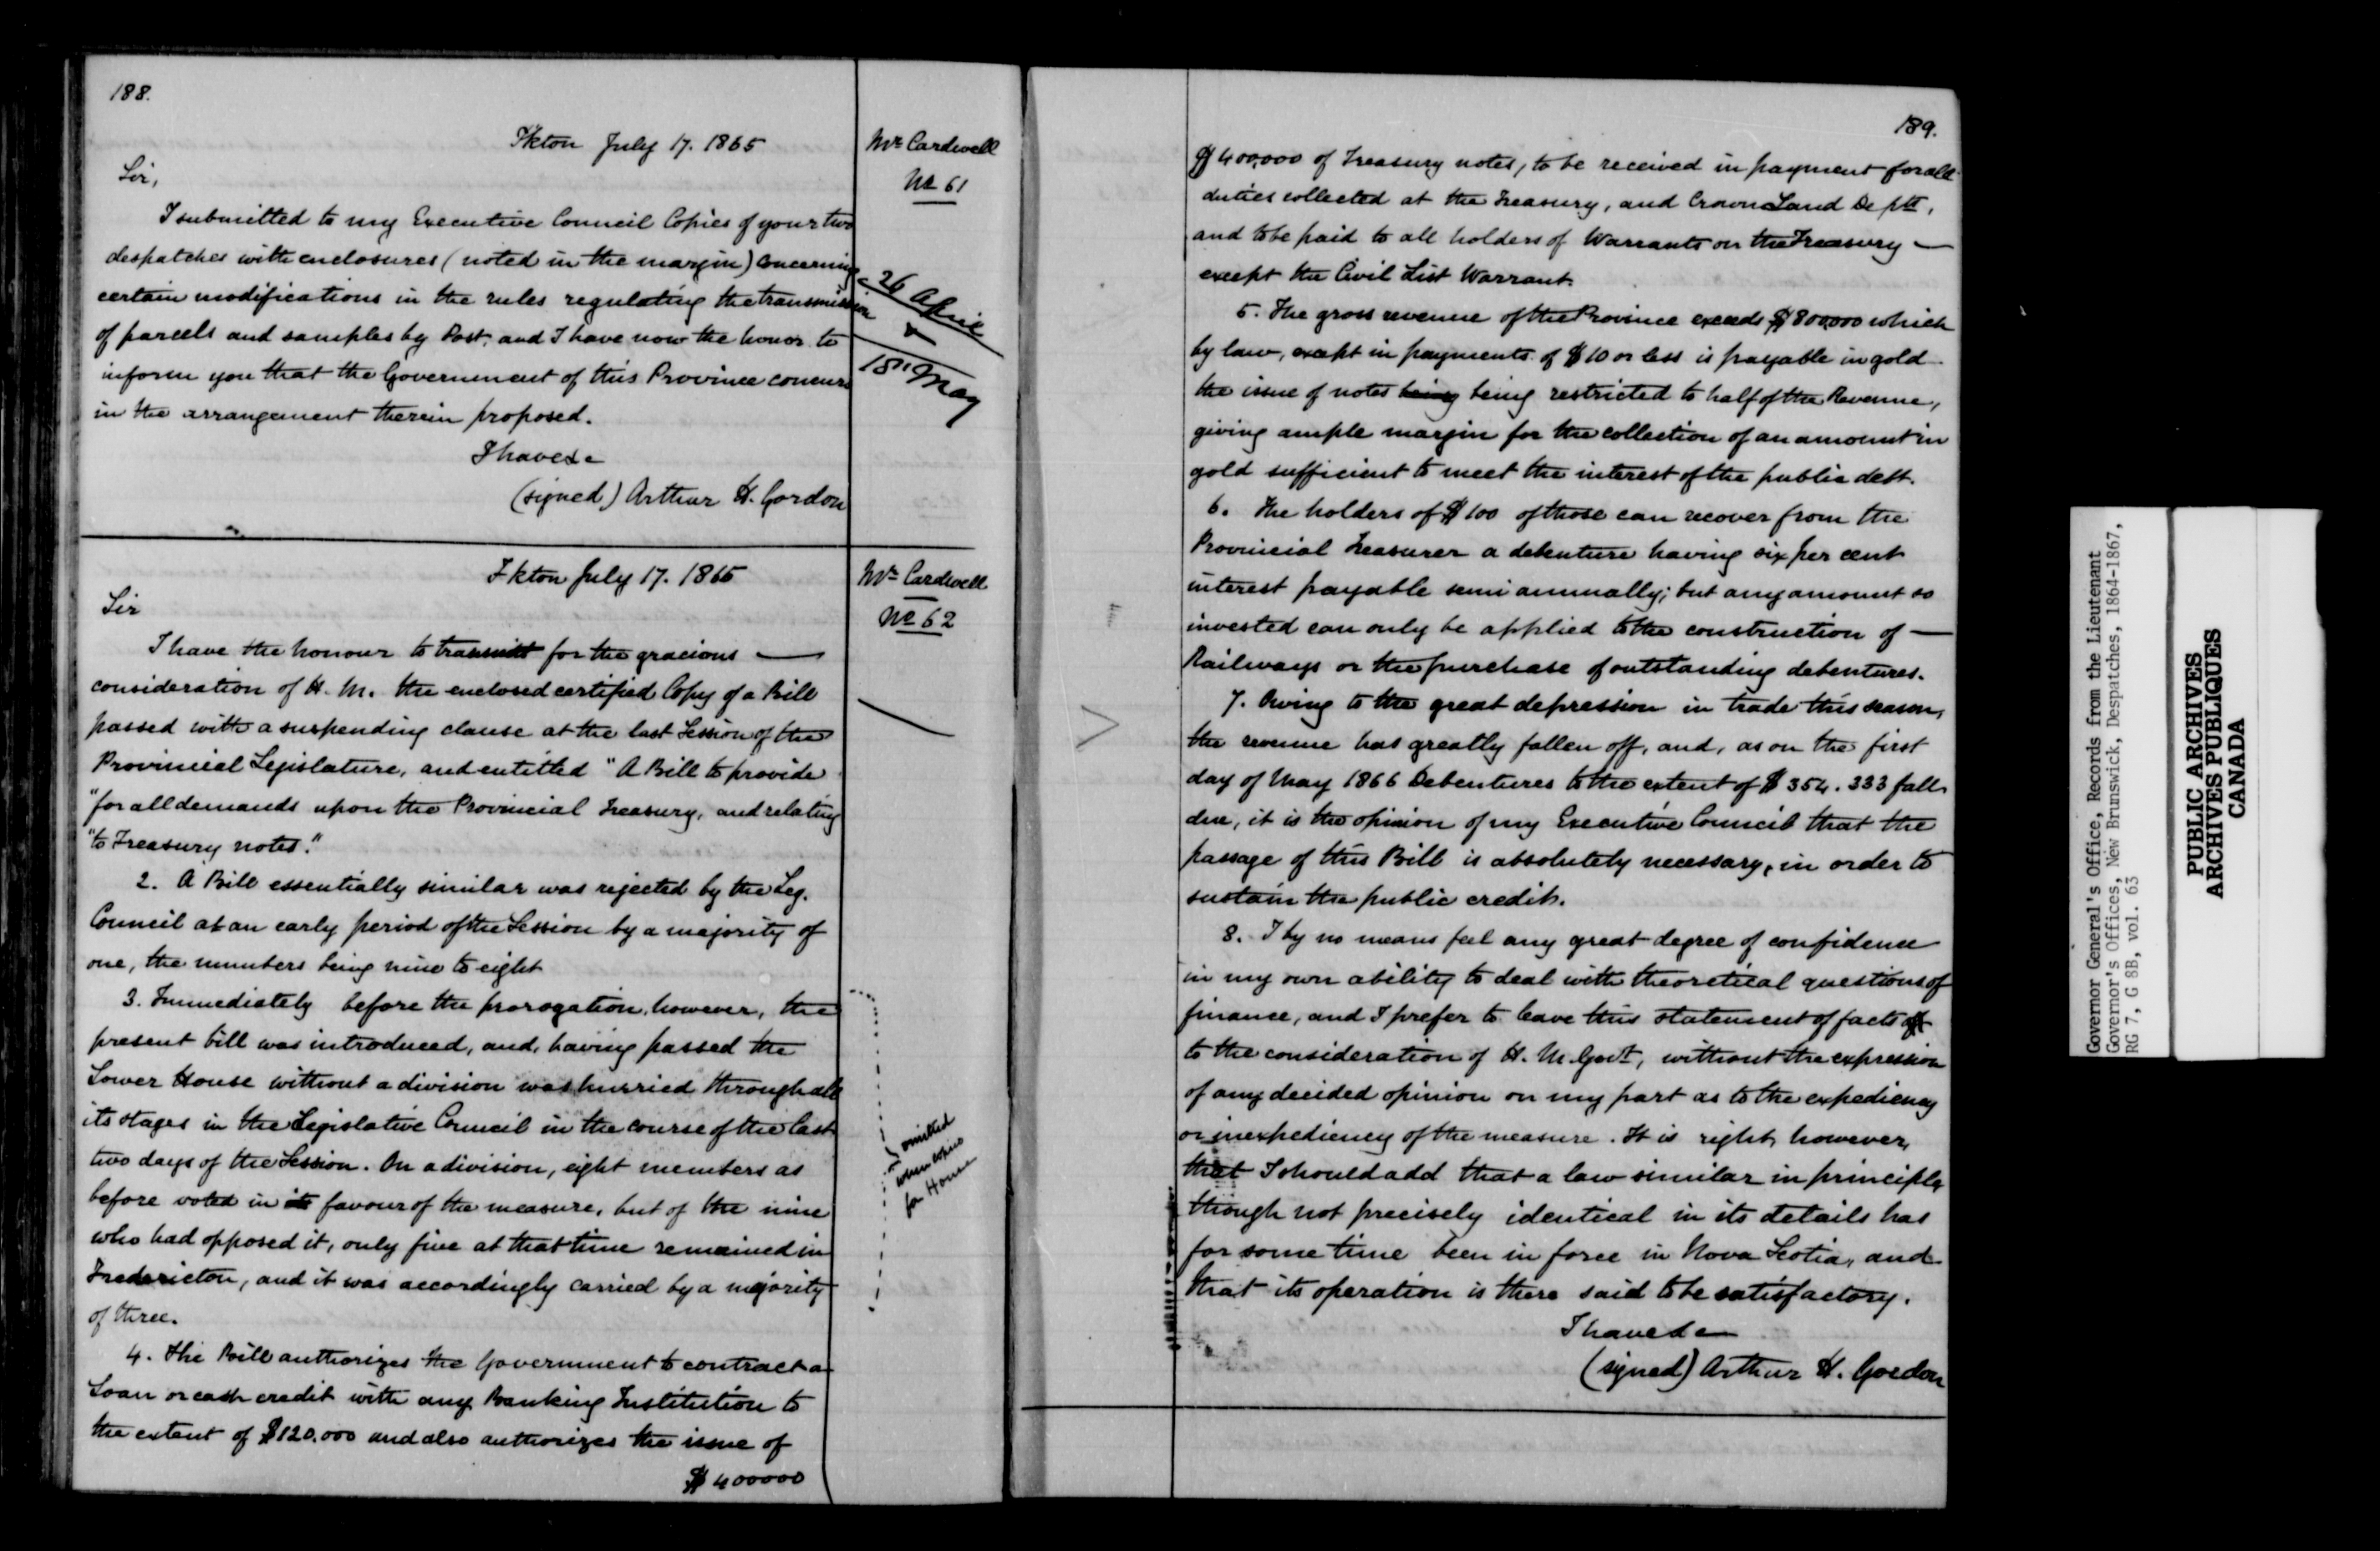 188.
Fkton July 17. 1865
Mr Cardwell
No 61
Sir,
I submitted to my Executive Council Copies of your two
despatches with enclosures (noted in the margin) concerning
certain modifications in the rules regulating the transmission
of parcels and samples by Post, and I have now the honor to
inform you that the Government of this Province concurs
in the arrangement therein proposed.
26 April
&
18th May
I have &c
(signed) Arthur H. Gordon
Fkton July 17. 1865
Mr Cardwell
No 62
Sir
I have the honour to transmit for the gracious —
consideration of H. M. the enclosed certified Copy of a Bill
passed with a suspending clause at the last Session of the
Provincial Legislature, and entitled "A Bill to provide
"for all demands upon the Provincial Treasury, and relating
"to Treasury notes."
2. A Bill essentially similar was rejected by the Leg.
Council at an early period of the Session by a majority of
one, the numbers being nine to eight
3. Immediately before the prorogation, however, the
present bill was introduced, and, having passed the
Lower House without a division was hurried through all
its stages in the Legislative Council in the course of the last
two days of the Session. On a division, eight members as
before voted in its favour of the measure, but of the nine
who had opposed it, only five at that time remained in
Fredericton, and it was accordingly carried by a majority
of three.
omitted
when
for House
4. The Bill authorizes the Government to contract a
Loan or cash credit with any Banking Institution to
the extent of $120.000 and also authorizes the issue of
$400000
189.
$400,000 of Treasury notes, to be received in payment for all
duties collected at the Treasury, and Crown Land Deptt,
and to be paid to all holders of Warrants on the Treasury —
except the Civil List Warrant.
5. The gross revenue of the Province exceeds $800,000 which
by law, except in payments of $10 or less is payable in gold
the issue of notes being being restricted to half of the Revenue,
giving ample margin for the collection of an amount in
gold sufficient to meet the interest of the public debt.
6. The holders of $100 of those can recover from the
Provincial Treasurer a debenture having six per cent
interest payable semi annually; but any amount so
invested can only be applied to the construction of —
Railways or the purchase of outstanding debentures.
7. Owing to the great depression in trade this season,
the revenue has greatly fallen off, and, as on the first
day of May 1866 Debentures to the extent of $354.333 fall
due, it is the opinion of my Executive Council that the
passage of this Bill is absolutely necessary, in order to
sustain the public credit.
8. I by no means feel any great degree of confidence
in my own ability to deal with theoretical questions of
finance, and I prefer to leave this statement of facts
to the consideration of H. M. Govt, without the expression
of any decided opinion on my part as to the expediency
or inexpediency of the measure. It is right, however,
that I should add that a law similar in principle
though not precisely identical in its details has
for some time been in force in Nova Scotia, and
that its operation is there said to be satisfactory.
I have &c
(signed) Arthur H. Gordon
Governor General's Office, Records from the Lieutenant
Governor's Offices, New Brunswick, Despatches, 1864-1867,
RG 7, G 8B, vol. 63
PUBLIC ARCHIVES
ARCHIVES PUBLIQUES
CANADA